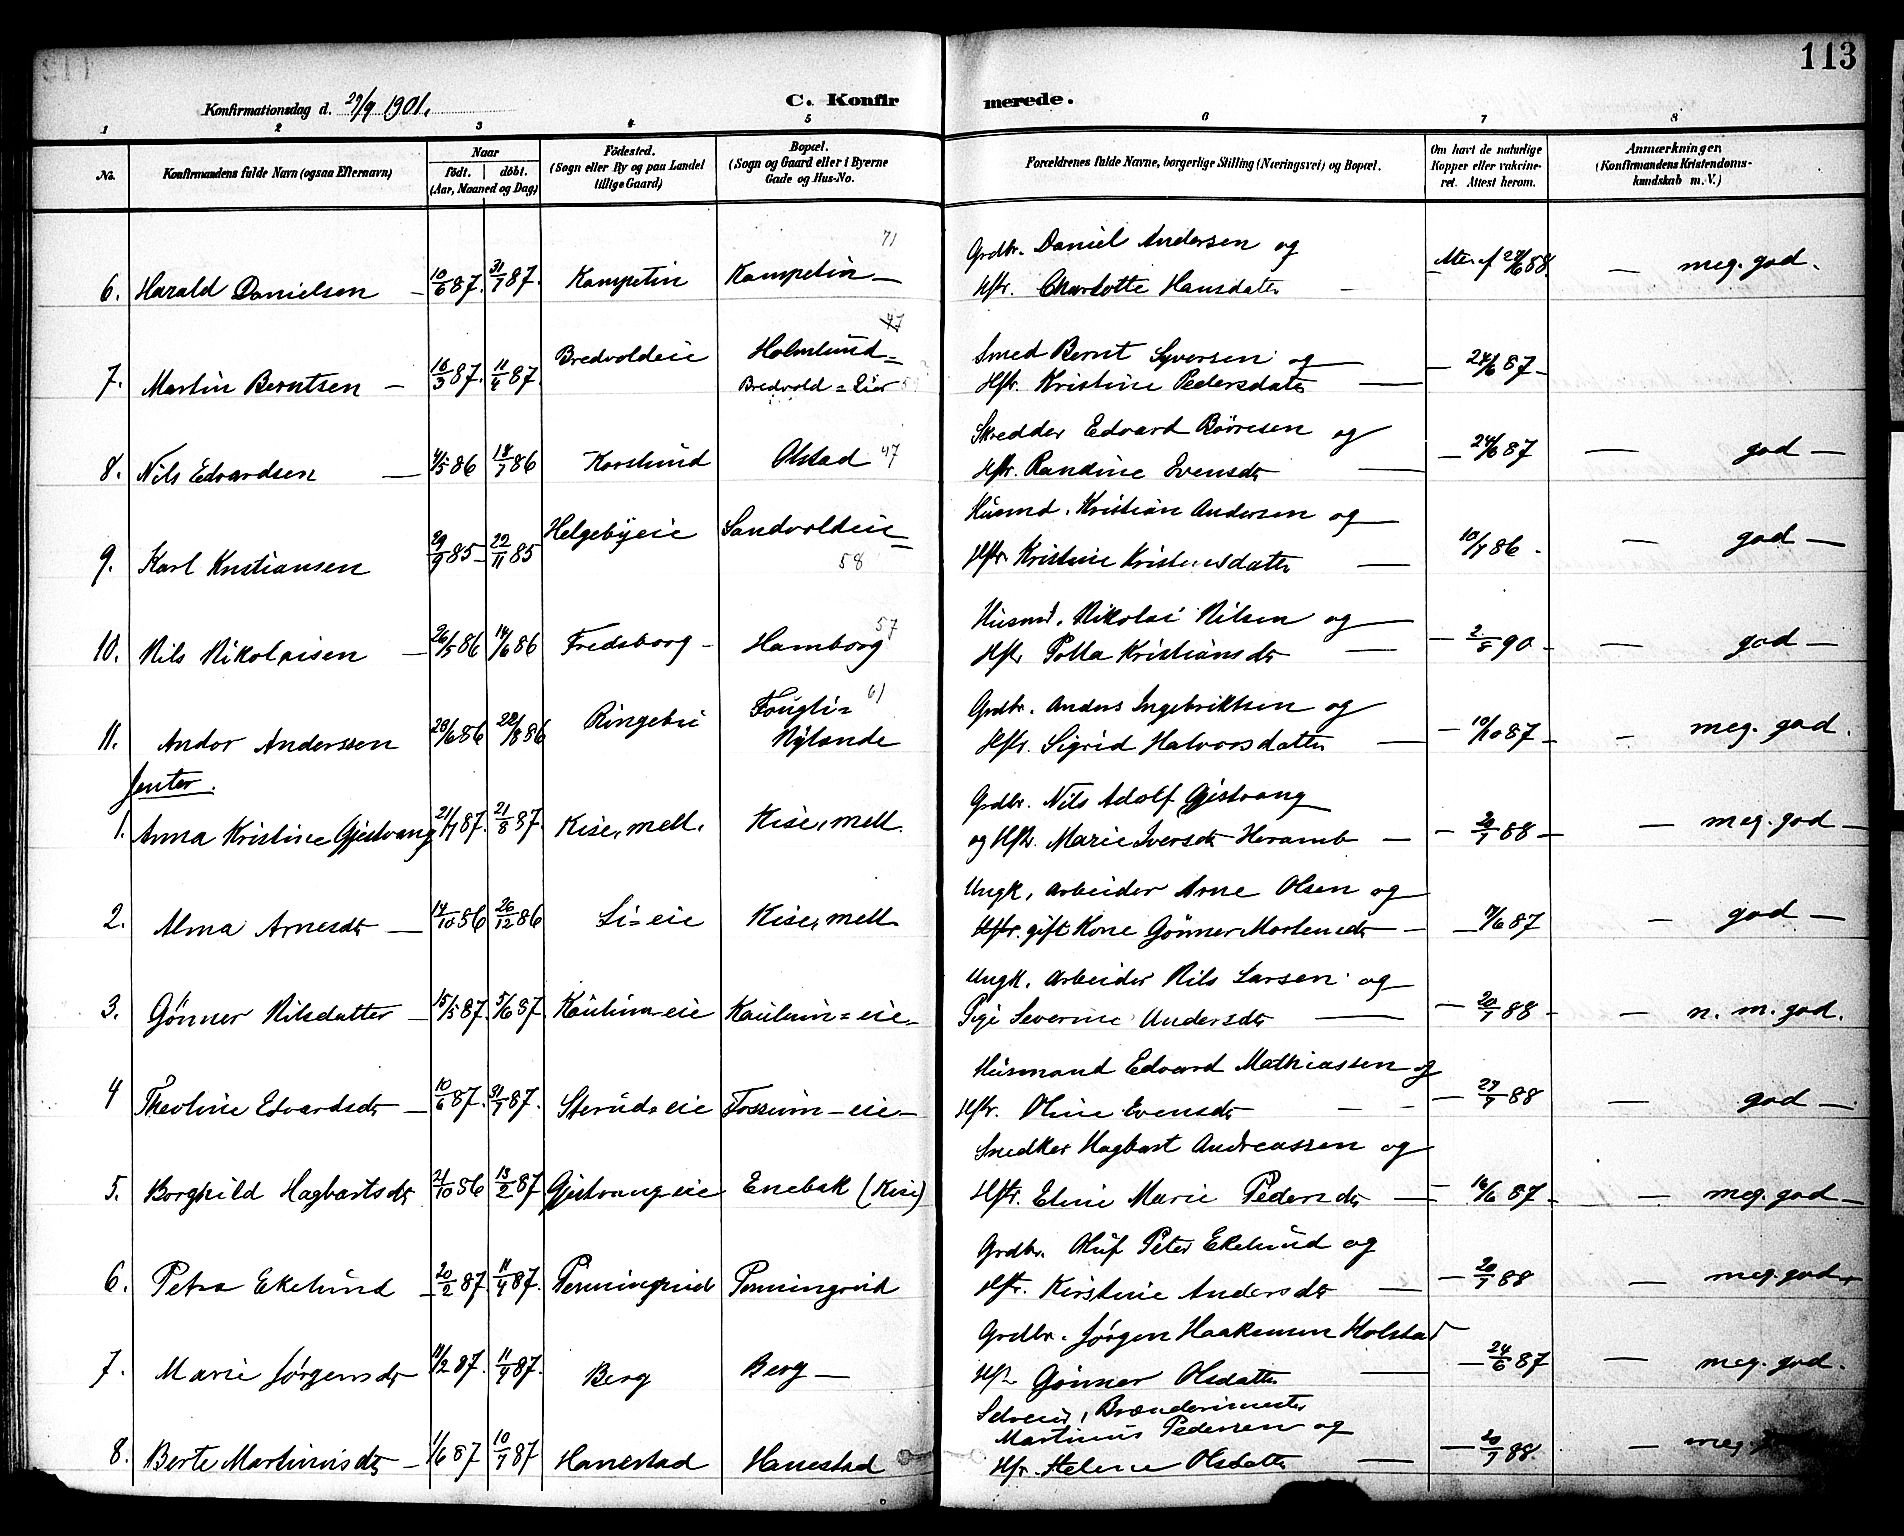 113
Konfirmationsdag d. 29/9 1901.
C. Konfirmerede.
1 2 3 4 5 6 7 8
No.
Konfirmandens fulde Navn (ogsaa Efternavn)
Naar
født. døbt.
(Aar, Maaned og Dag)
Fødested.
(Sogn eller By og paa Landet
tillige Gaard)
Bopæl.
(Sogn og Gaard eller i Byerne
Gade og Hus-No.
Forældrenes fulde Navne, borgerlige Stilling (Næringsvei) og Bopæl.
Om havt de naturlige
Kopper eller vakcine-
ret. Attest herom.
Anmærkninger
(Konfirmandens Kristendoms-
kundskab m. V.)
71
Grdbr. Daniel Andersen og
6. Harald Danielsen 10/6 87. 31/7 87. Kampetin Kampetin Hstr. Charlotte Hansdatter 24/6 88 meg. god.
47
7. Martin Berntsen 16/3 87. 11/4 87. Bredvoldeie Holmlund= Smed Bernt Syversen og
Bredvold=Eier Hstr. Kristine Pedersdatter 24/6 87
Skredder Edvard Børresen og
8. Nils Edvardsen 4/5 86 18/7 86 Korslund Olstad 47 Hstr. Randine Svensdtr 24/6 87 god
Husmd. Kristian Andersen og
9. Karl Kristiansen 29/9 85 22/11 85 Helgebyeie Sandvoldeie 58 Hstr. Kristine Kristensdatter 10/7 86 god
57
Husmd. Nikolai Nilsen og
10. Nils Nikolaisen 26/5 86 14/6 86 Fredsborg Hamborg Hstr Kristiansdtr 90 god
61
Grdbr. Anders Ingebriktsen og
11. Andor Anderssen 20/6 86 22/8 86 Ringebu Nylande Hstr. Sigrid Halvorsdatter 10/10 87 meg. god.
Jenter.
Grdbr. Nils Adolf Gjestvang
1. Anna Kristine Gjestvang 21/7 87. 21/8 87. Kise, mell. Kise, mell. og Hstr. Marie Iversdtr Heramb 20/7 88 meg. god
Ungk. arbeider Arne Olsen og
2. Alma Arnesdtr 14/10 86 26/12 86 Li=eie Kise, mell gift Kone Gønner Mortensdtr 7/6 87 god
Ungk. arbeider Nils Larsen og
3. Gønner Nilsdatter 15/5 87. 5/6 87 Kaulum-eie Kaulum=eie Pige Severine Andersdtr 20/7 88 n. m. god.
Husmand Edvard Mathiassen og
4 Theoline Edvardsdtr 10/6 87. 31/7 87. Sterud=eie Fossum-eie Hstr. Oline Evensdtr 27/7 88 god
Snedker Hagbart Andreassen og
5. Borghild Hagbartsdtr 21/10 86 13/2 87 Gjestvangeie Enebak (Kise) Hstr. Eline Marie Pedersdtr 16/6 87 meg. god
Grdbr. Oluf Peter Ekelund og
6. Petra Ekelund 20/2 87. 11/4 87. Penningrud Penningrud Hstr. Kirstine Andersdtr 20/7 88 meg. god
Grdbr. Jørgen Haakensen Holstad
7. Marie Jørgensdtr 11/2 87. 11/4 87. Berg Berg Hstr Gønner Olsdatter 24/6 87 meg. god.
Selveier, Brænderimester
Martinus Pedersen og
8. Berte Martinusdtr 1/6 87 10/7 87 Hanestad Hanestad Hstr. Helene Olsdatter 20/7 88. meg.